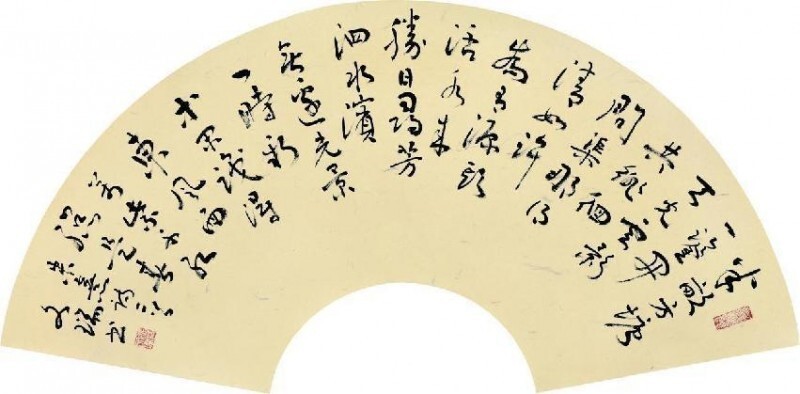 半畝方塘
一鑒开
天光雲影
共徘徊
問渠那得
清如許
為有源頭
活水來
勝日尋芳
泗水濱
無邊光景
一時新
識得
東風面
萬紫千紅
總是春
朱熹詩二
文瑞书